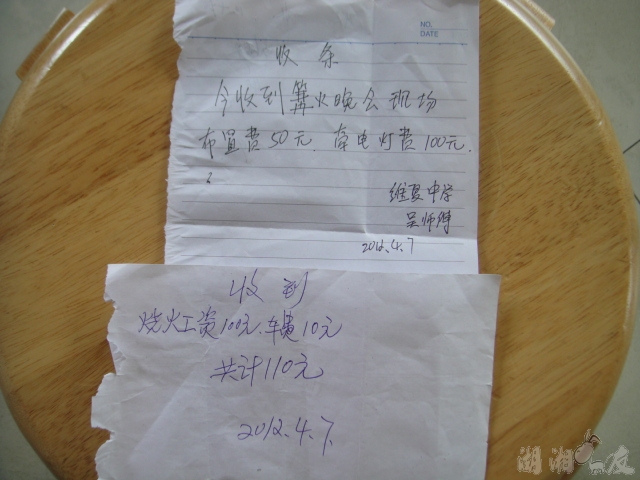 NO.
DATE
收条
今收到篝火晚会现场
布置费50元.牵电灯费100元.
维夏中学
吴师傅
2012.4.7
收到
烧火工资100元.车费10元
共计110元
2012.4.7.
湖湘 友